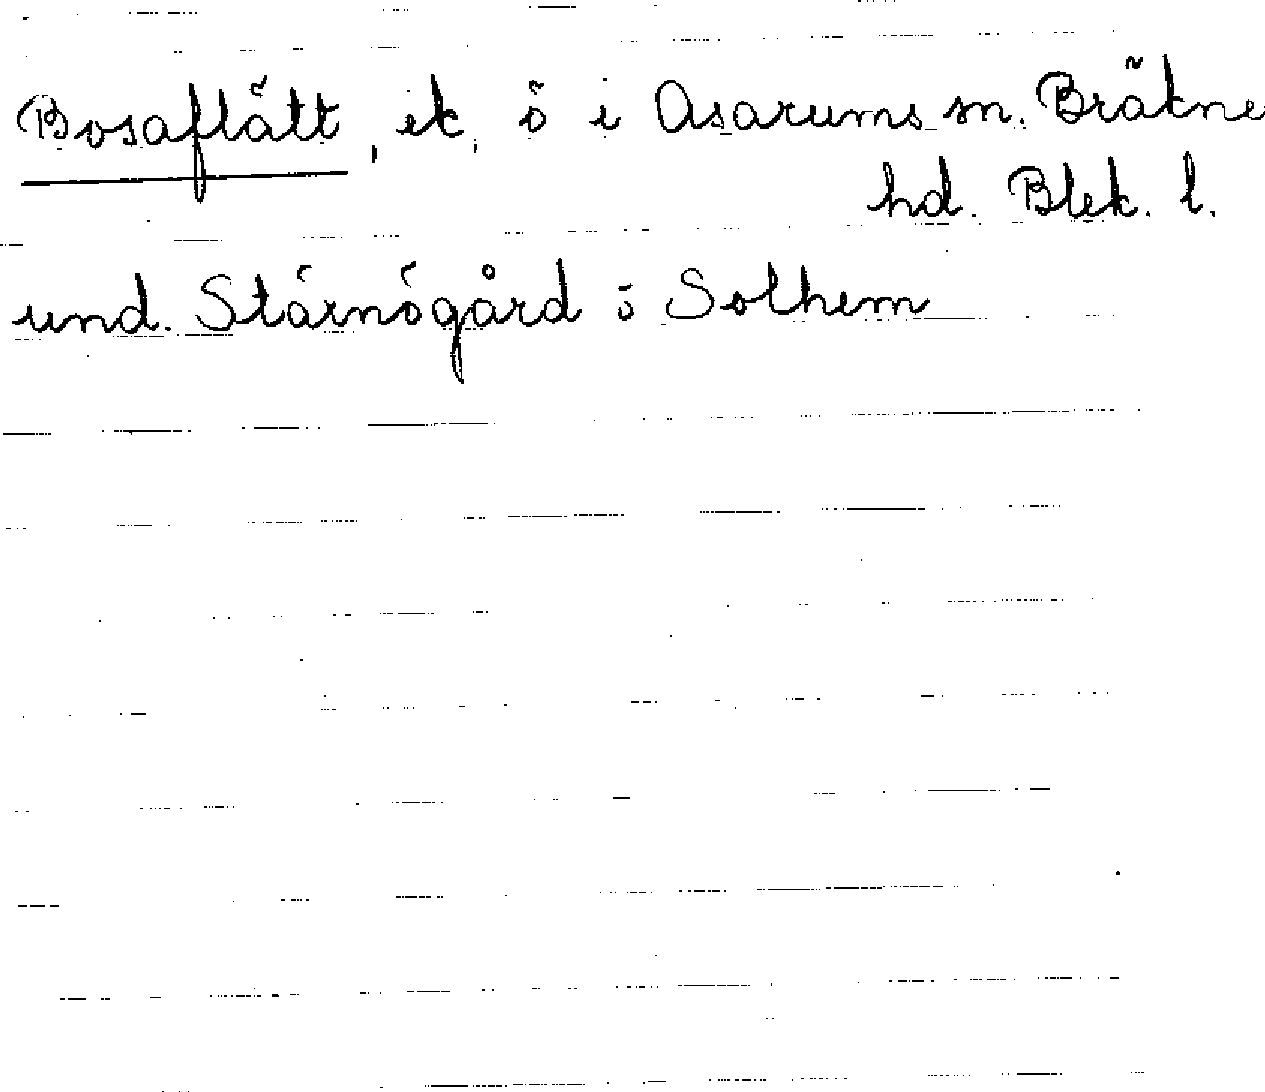 Bosaflätt, ek, ö i Asarums sn. Bräkne
hd. Blek. l.
und. Stärnögård ö Solhem